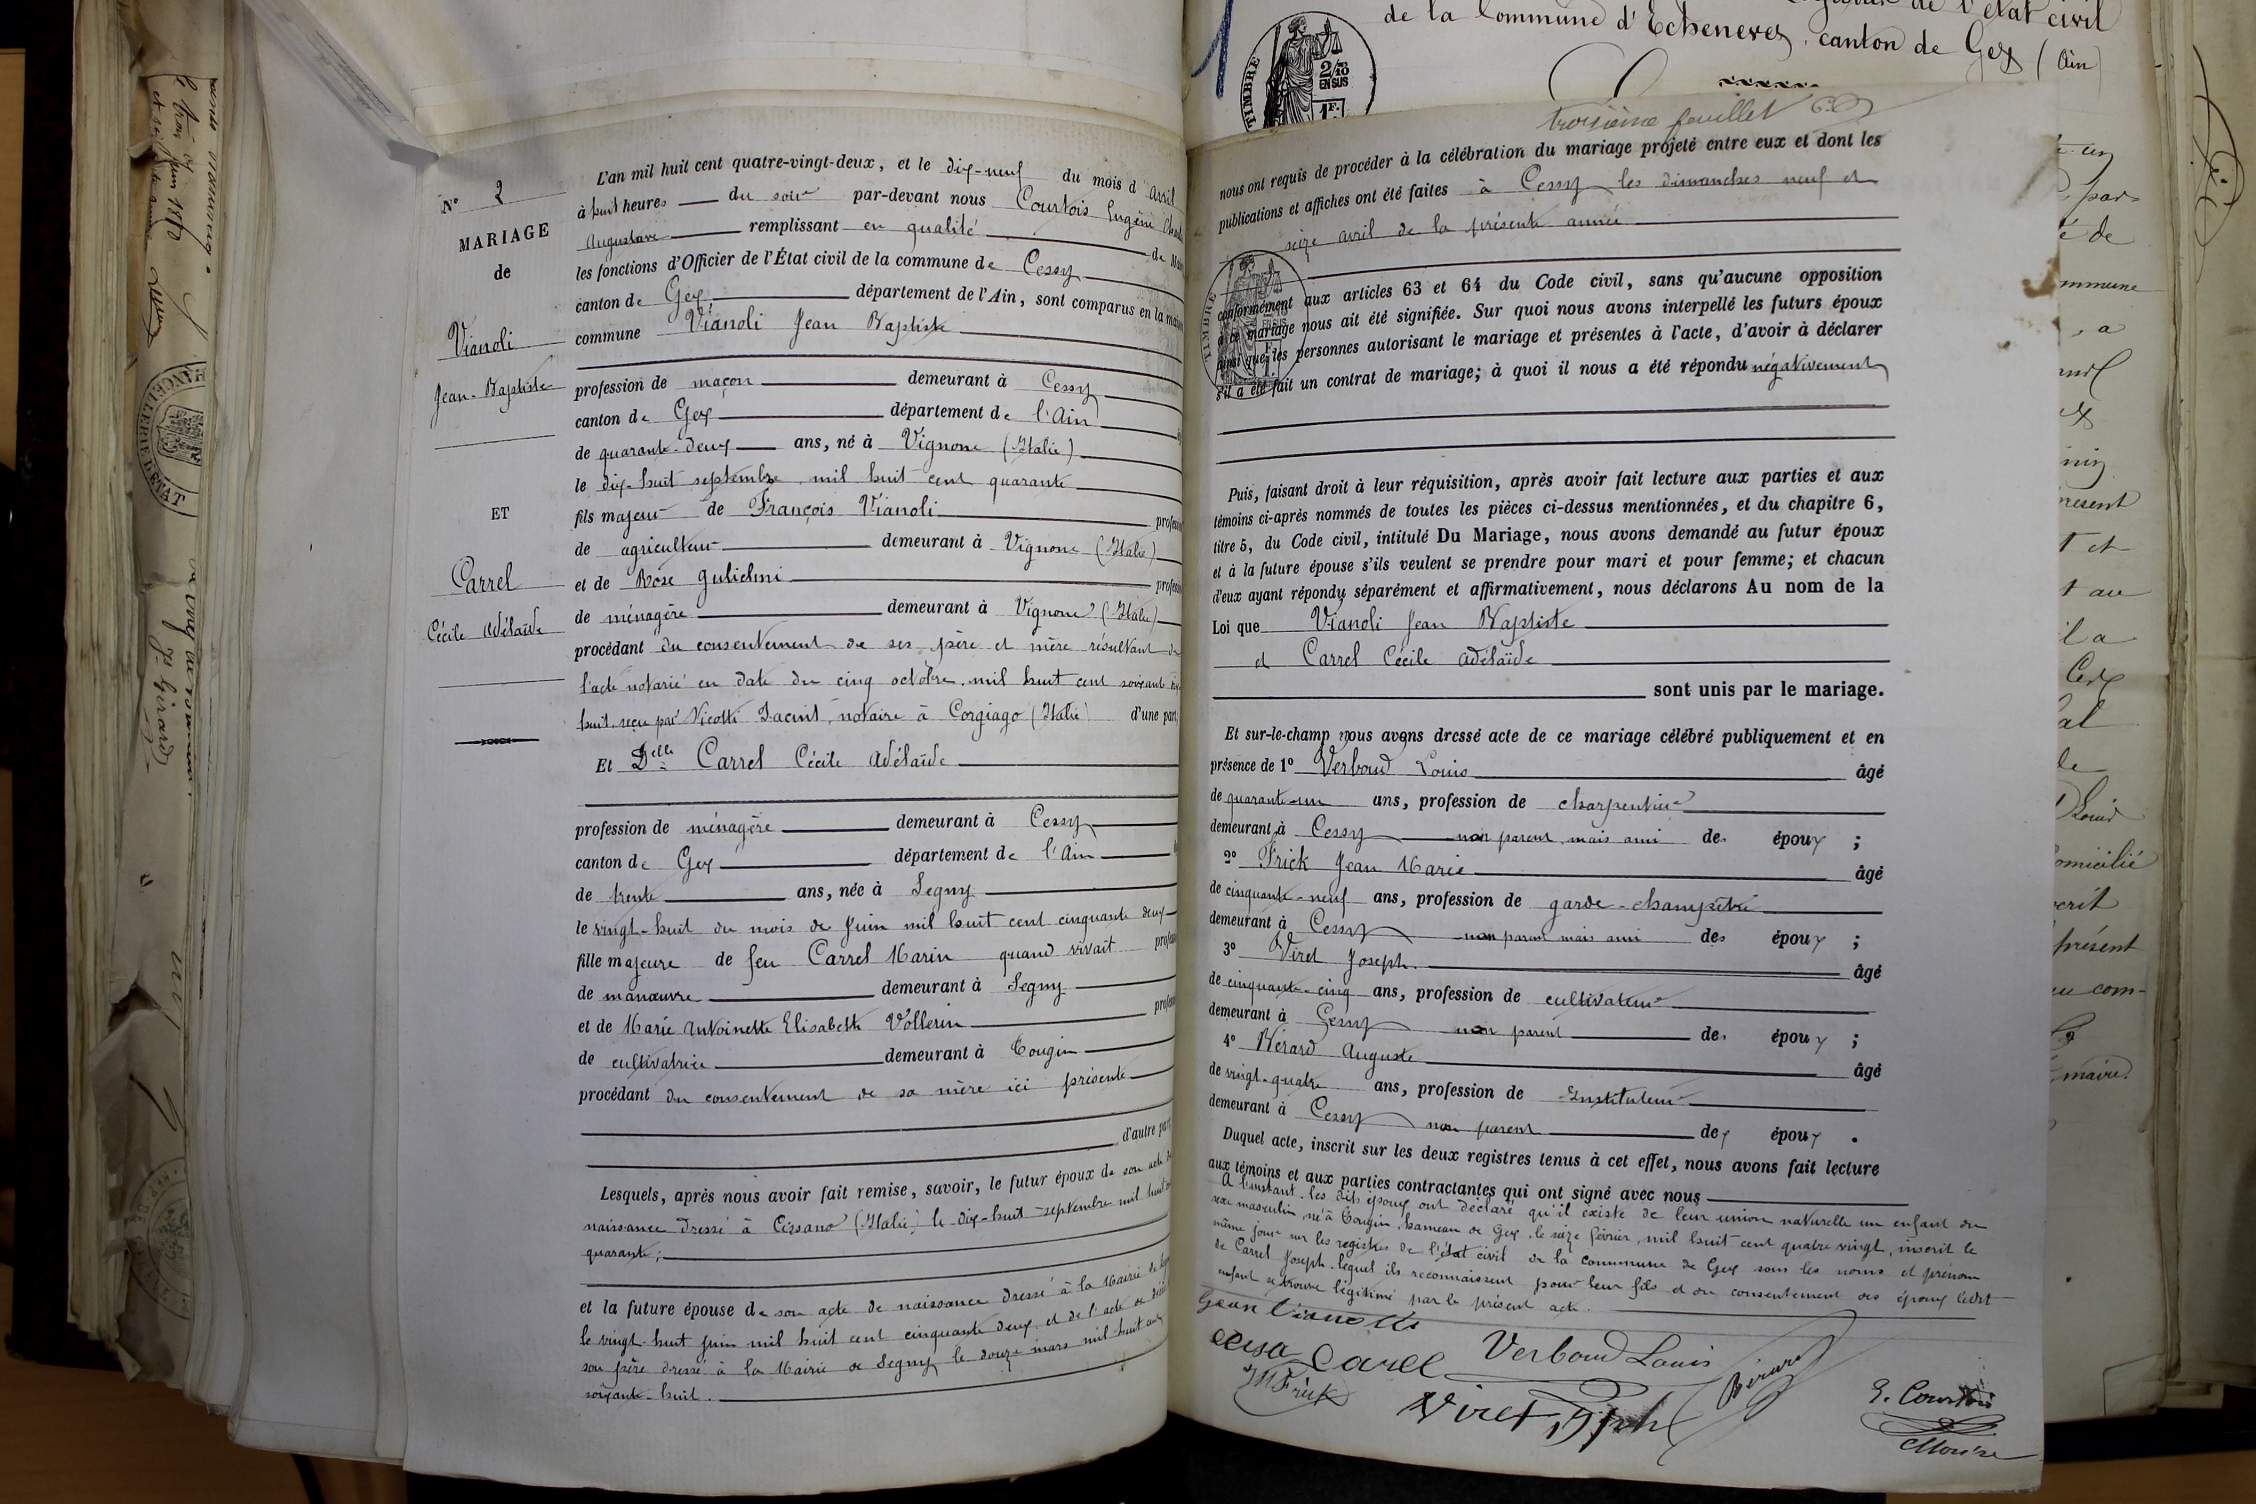 N° 2
MARIAGE
de
Vianoli
Jean-Baptiste
ET
Carrel
Cécile Adélaïde
L'an mil huit cent quatre-vingt-deux, et le dix-neuf du mois d'Avril
à huit heures du soir par-devant nous Courtois Eugène
Augustave remplissant en qualité de
les fonctions d'Officier de l'État civil de la commune de Cessy
canton de Gex département de l'Ain, sont comparus en la
commune Vianoli Jean Baptiste
profession de maçon demeurant à Cessy
canton de Gex département de l'Ain
de quarante-deux ans, né à Vignone (Italie)
le dix-huit septembre mil huit cent quarante
fils majeur de François Vianoli
de agriculteur demeurant à Vignone (Italie)
et de Rose Gulielmi
de ménagère demeurant à Vignone (Italie)
procédant du consentement de ses père et mère résultant de
l'acte notarié en date du cinq octobre mil huit cent soixante
huit reçu par Nicolti Jacint, notaire à Corgiago (Italie) d'une part,
Et Delle Carrel Cécile Adélaïde
profession de ménagère demeurant à Cessy
canton de Gex département de l'Ain
de trente ans, née à Segny
le vingt-huit du mois de Juin mil huit cent cinquante deux
fille majeure de feu Carrel Marin quand vivait
de manœuvre demeurant à Segny
et de Marie Antoinette Elisabeth Vollerin
de cultivatrice demeurant à Tougin
procédant du consentement de sa mère ici présente
d'autre part,
Lesquels, après nous avoir fait remise, savoir, le futur époux de son acte de
naissance dressé à Cissano (Italie) le dix-huit septembre mil huit
quarante;
et la future épouse de son acte de naissance dressé à la Mairie de
le vingt-huit juin mil huit cent cinquante deux et de l'acte de
son père dressé à la Mairie de Segny le douze mars mil huit cent
soixante-huit.
de la Commune d'Echenevex, canton de Gex (Ain)
TIMBRE
2/10
EN SUS
1F.
troisième feuillet
nous ont requis de procéder à la célébration du mariage projeté entre eux et dont les
publications et affiches ont été faites à Cessy les dimanches neuf et
seize avril de la présente année
conformément aux articles 63 et 64 du Code civil, sans qu'aucune opposition
à ce mariage nous ait été signifiée. Sur quoi nous avons interpellé les futurs époux
ainsi que les personnes autorisant le mariage et présentes à l'acte, d'avoir à déclarer
s'il a été fait un contrat de mariage; à quoi il nous a été répondu négativement
Puis, faisant droit à leur réquisition, après avoir fait lecture aux parties et aux
témoins ci-après nommés de toutes les pièces ci-dessus mentionnées, et du chapitre 6,
titre 5, du Code civil, intitulé Du Mariage, nous avons demandé au futur époux
et à la future épouse s'ils veulent se prendre pour mari et pour femme; et chacun
d'eux ayant répondu séparément et affirmativement, nous déclarons Au nom de la
Loi que Vianoli Jean Baptiste
et Carrel Cécile Adélaïde
sont unis par le mariage.
Et sur-le-champ nous avons dressé acte de ce mariage célébré publiquement et en
présence de 1° Verboud Louis âgé
de quarante-un ans, profession de charpentier
demeurant à Cessy non parent mais ami des époux ;
2° Frick Jean Marie âgé
de cinquante-neuf ans, profession de garde-champêtre
demeurant à Cessy non parent mais ami des époux ;
3° Viret Joseph âgé
de cinquante-cinq ans, profession de cultivateur
demeurant à Cessy non parent des époux ;
4° Bérard Auguste âgé
de vingt-quatre ans, profession de Instituteur
demeurant à Cessy non parent des époux .
Duquel acte, inscrit sur les deux registres tenus à cet effet, nous avons fait lecture
aux témoins et aux parties contractantes qui ont signé avec nous
A l'instant les dits époux ont déclaré qu'il existe de leur union naturelle un enfant du
sexe masculin né à Tougin, hameau de Gex, le seize février mil huit cent quatre vingt, inscrit le
même jour sur les registres de l'état civil de la commune de Gex sous les noms et prénom
de Carrel Joseph lequel ils reconnaissent pour leur fils et du consentement des époux ledit
enfant se trouve légitimé par le présent acte.
Gean Vianolli
Carel
Verboud Louis
JM Frick
Viret Jph
Bérard
E. Courtois
Maire